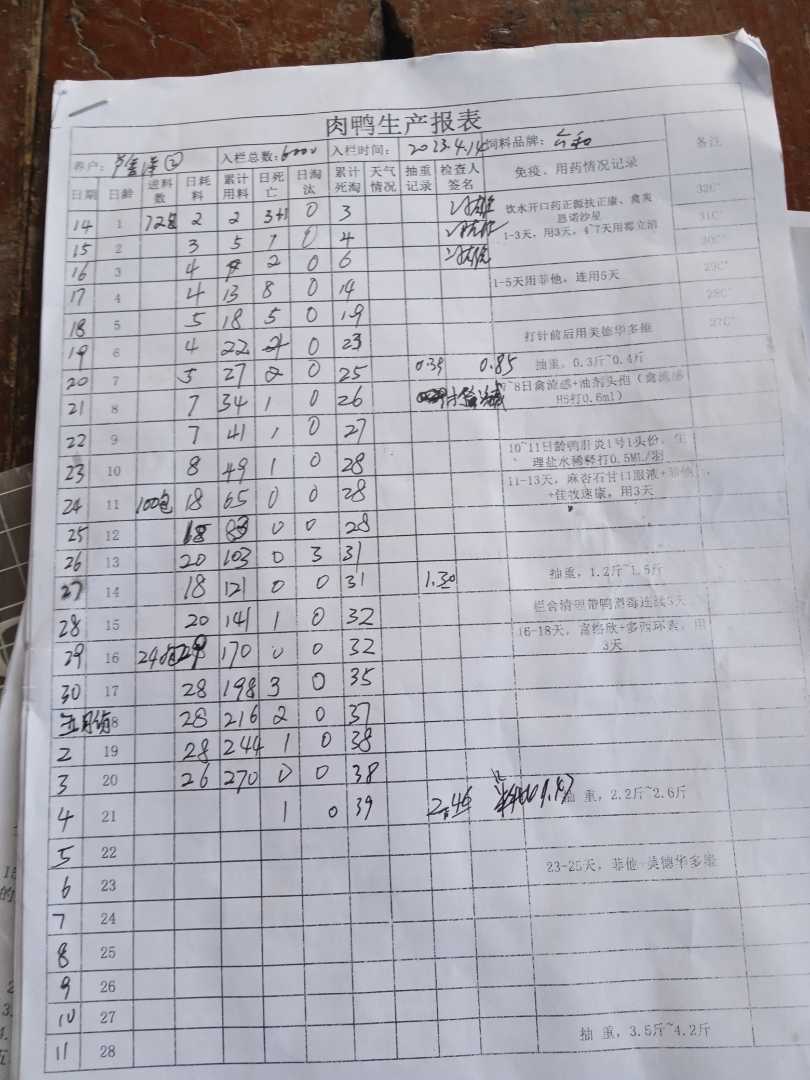 肉鸭生产报表
养户: ② 入栏总数:6000 入栏时间: 2023.4.14 饲料品牌: 六和 备注
日期 日龄 进料数 日耗料 累计用料 日死亡 日淘汰 累计死淘 天气情况 抽重记录 检查人签名 免疫、用药情况记录
14 1 128 2 2 3 0 3 饮水开口药正源扶正康、禽爽恩诺沙星 32C°
15 2 3 5 1 0 4 1-3天, 用3天, 4~7天用霉立消 31C°
16 3 4 9 2 0 6 30C°
17 4 4 13 8 0 14 1-5天用菲他, 连用5天 29C°
18 5 5 18 5 0 19 28C°
19 6 4 22 4 0 23 打针前后用美德华多维 27C°
20 7 5 27 2 0 25 0.39 0.85 抽重, 0.3斤~0.4斤
21 8 7 34 1 0 26 7~8日禽流感+油剂头孢(禽流感H5打0.6ml)
22 9 7 41 1 0 27
23 10 8 49 1 0 28 10~11日龄鸭肝炎1号1头份, 生理盐水稀释打0.5ML/羽
24 11 100包 18 65 0 0 28 11-13天, 麻杏石甘口服液+菲他+佳牧速康, 用3天
25 12 18 83 0 0 28
26 13 20 103 0 3 31
27 14 18 121 0 0 31 1.30 抽重, 1.2斤~1.5斤
28 15 20 141 1 0 32 栏舍清理带鸭消毒连续3天
29 16 240包 29 170 0 0 32 16-18天, 用3天
30 17 28 198 3 0 35
五月份 18 28 216 2 0 37
2 19 28 244 1 0 38
3 20 26 270 0 0 38
4 21 1 0 39 2.46 抽 重, 2.2斤~2.6斤
5 22
6 23 23-25天, 菲他+美德华多维
7 24
8 25
9 26
10 27
11 28 抽 重, 3.5斤~4.2斤